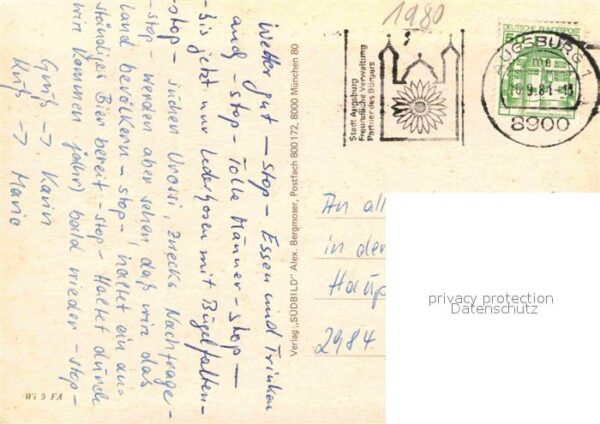 Wetter gut – stop – Essen und Trinken
auch – stop – Tolle Männer – stop –
Bis jetzt nur Lederhosen mit Bügelfalten –
stop – suchen Urossi, zwecks Nachfrage –
– stop – wenden aber sehen daß wir das
Land bevölkern – stop – haltet ein an-
ständiges Bier bereit – stop – Haltet durch
wir kommen bald wieder – stop –
Gruß → Karin
Kuß → Maria
Wi 5 FA
Verlag „SÜDBILD" Alex. Bergmoser, Postfach 800172, 8000 München 80
1980
Stadt Augsburg
Freundliche Verwaltung
Partner des Bürgers
DEUTSCHE BUNDESPOST
AUGSBURG 1
8900
An all
in der
Haup
2984
privacy protection
Datenschutz